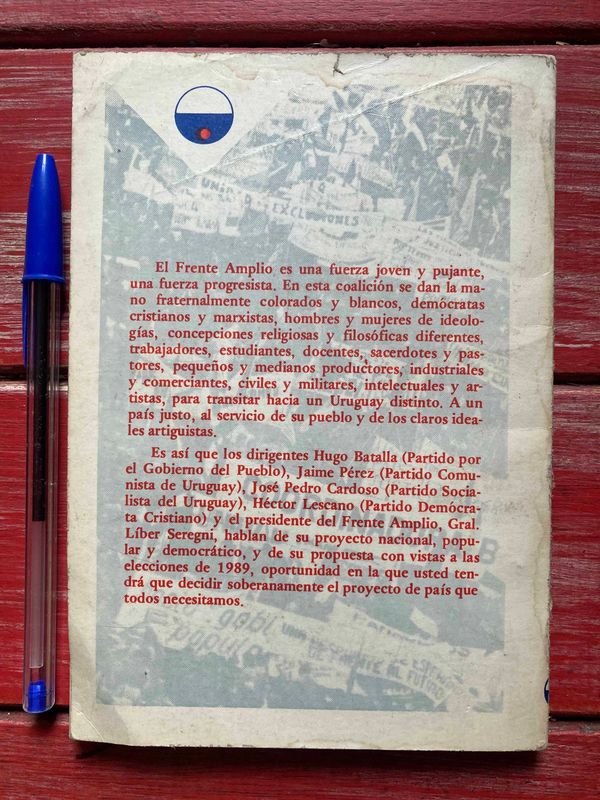 UNIDAD SIN EXCLUSIONES
El Frente Amplio es una fuerza joven y pujante,
una fuerza progresista. En esta coalición se dan la ma-
no fraternalmente colorados y blancos, demócratas
cristianos y marxistas, hombres y mujeres de ideolo-
gías, concepciones religiosas y filosóficas diferentes,
trabajadores, estudiantes, docentes, sacerdotes y pas-
tores, pequeños y medianos productores, industriales
y comerciantes, civiles y militares, intelectuales y ar-
tistas, para transitar hacia un Uruguay distinto. A un
país justo, al servicio de su pueblo y de los claros idea-
les artiguistas.
Es así que los dirigentes Hugo Batalla (Partido por
el Gobierno del Pueblo), Jaime Pérez (Partido Comu-
nista de Uruguay), José Pedro Cardoso (Partido Socia-
lista del Uruguay), Héctor Lescano (Partido Demócra-
ta Cristiano) y el presidente del Frente Amplio, Gral.
Líber Seregni, hablan de su proyecto nacional, popu-
lar y democrático, y de su propuesta con vistas a las
elecciones de 1989, oportunidad en la que usted ten-
drá que decidir soberanamente el proyecto de país que
todos necesitamos.